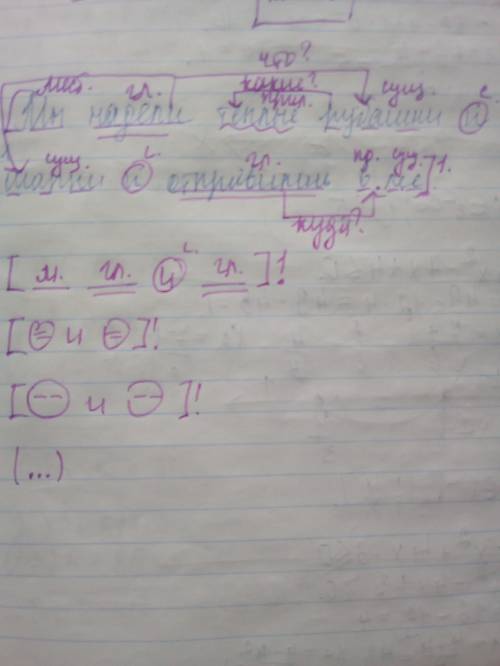 что?
мест. гл. какие? прил. сущ. с.
Мы надели теплые рубашки и
сущ. с. гл. пр. сущ.
и отправились в лес]1.
куда?
[м. гл. и гл.]!
[и]!
[и]!
(...)